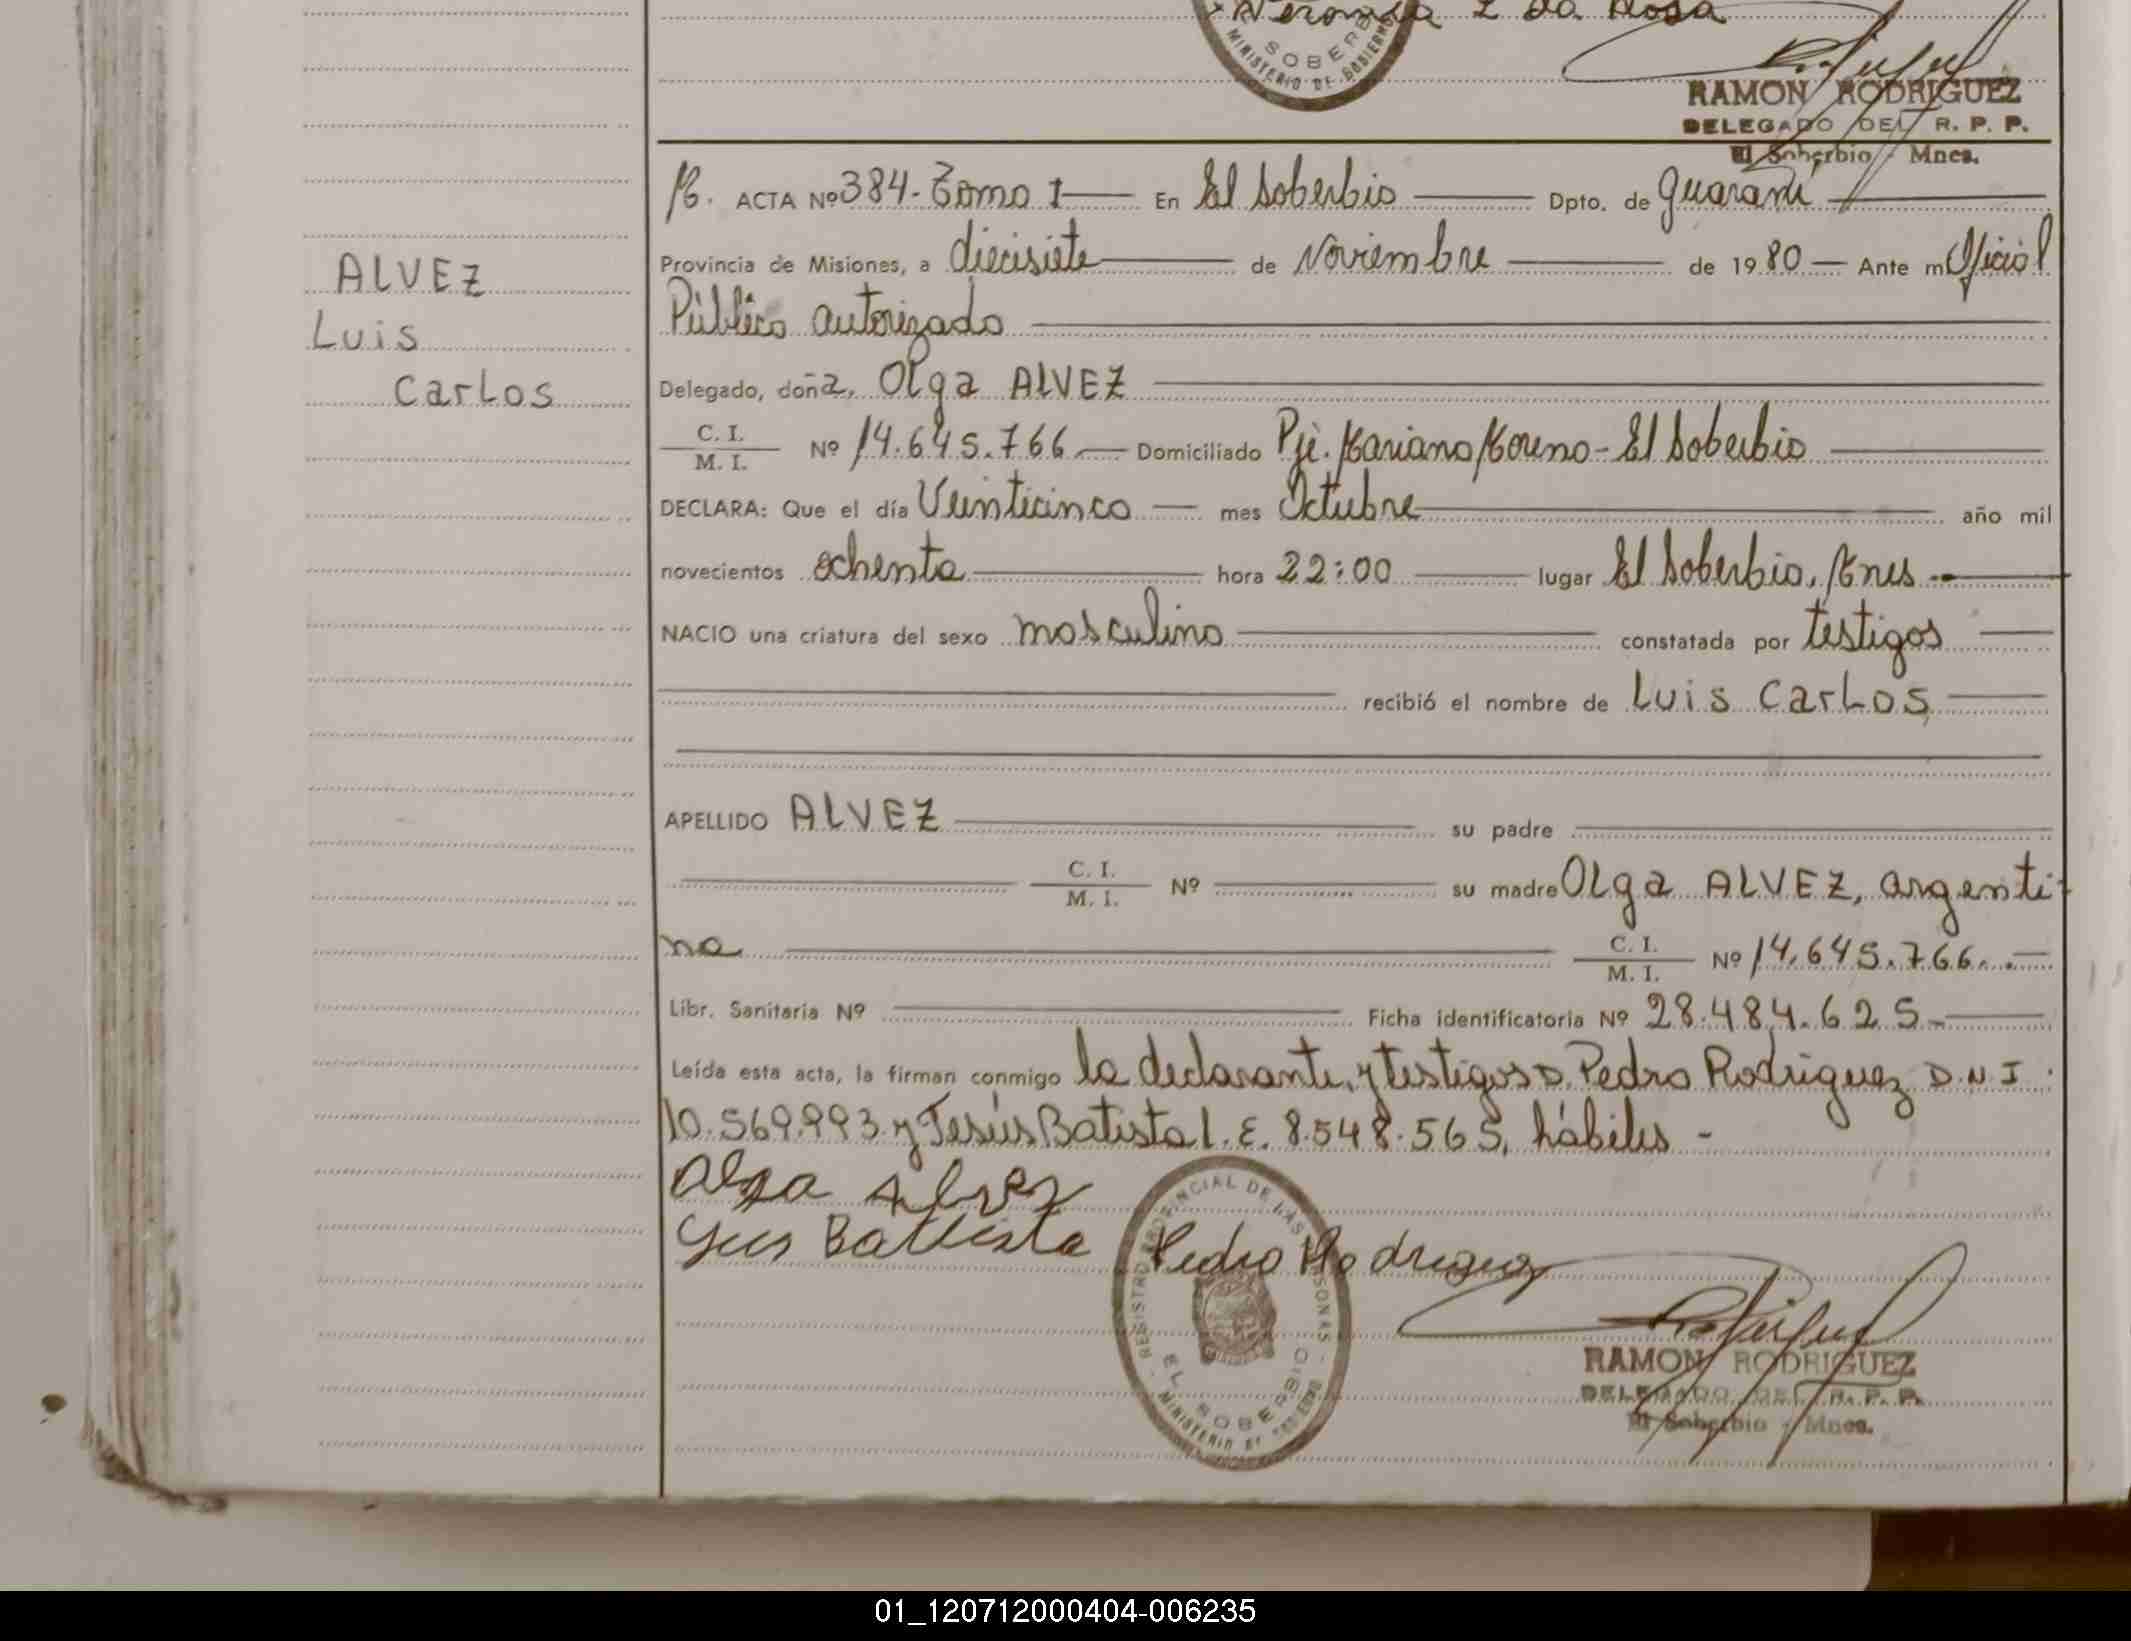 Veronica L da Rosa
SOBERB
MINISTERIO DE GOBIERNO
RAMON RODRIGUEZ
DELEGADO DEL R. P. P.
El Soberbio - Mnes.
ACTA Nº 384 - Tomo I En El Soberbio Dpto. de Guaraní
ALVEZ
Luis
Carlos
Provincia de Misiones, a diecisiete de Noviembre de 1980 Ante mí Oficial
Público autorizado
Delegado, doña, Olga ALVEZ
C. I.
M. I. Nº 14.645.766.- Domiciliado Pje. Mariano Moreno - El Soberbio
DECLARA: Que el día Veinticinco mes Octubre año mil
novecientos ochenta hora 22:00 lugar El Soberbio, Mnes -
NACIO una criatura del sexo masculino constatada por testigos
recibió el nombre de Luis Carlos
APELLIDO ALVEZ su padre
C. I.
M. I. Nº su madre Olga ALVEZ, argenti-
na C. I.
M. I. Nº 14.645.766.-
Libr. Sanitaria Nº Ficha identificatoria Nº 28.484.625-
Leída esta acta, la firman conmigo la declarante, y testigos D. Pedro Rodriguez D.N.I.
10.569.993 y Jesús Batista L.E. 8.548.565, hábiles -
Olga Alvez
Batista Pedro Rodriguez
REGISTRO PROVINCIAL DE LAS PERSONAS
EL SOBERBIO
MINISTERIO DE GOBIERNO
RAMON RODRIGUEZ
DELEGADO DEL R. P. P.
El Soberbio - Mnes.
01_120712000404-006235